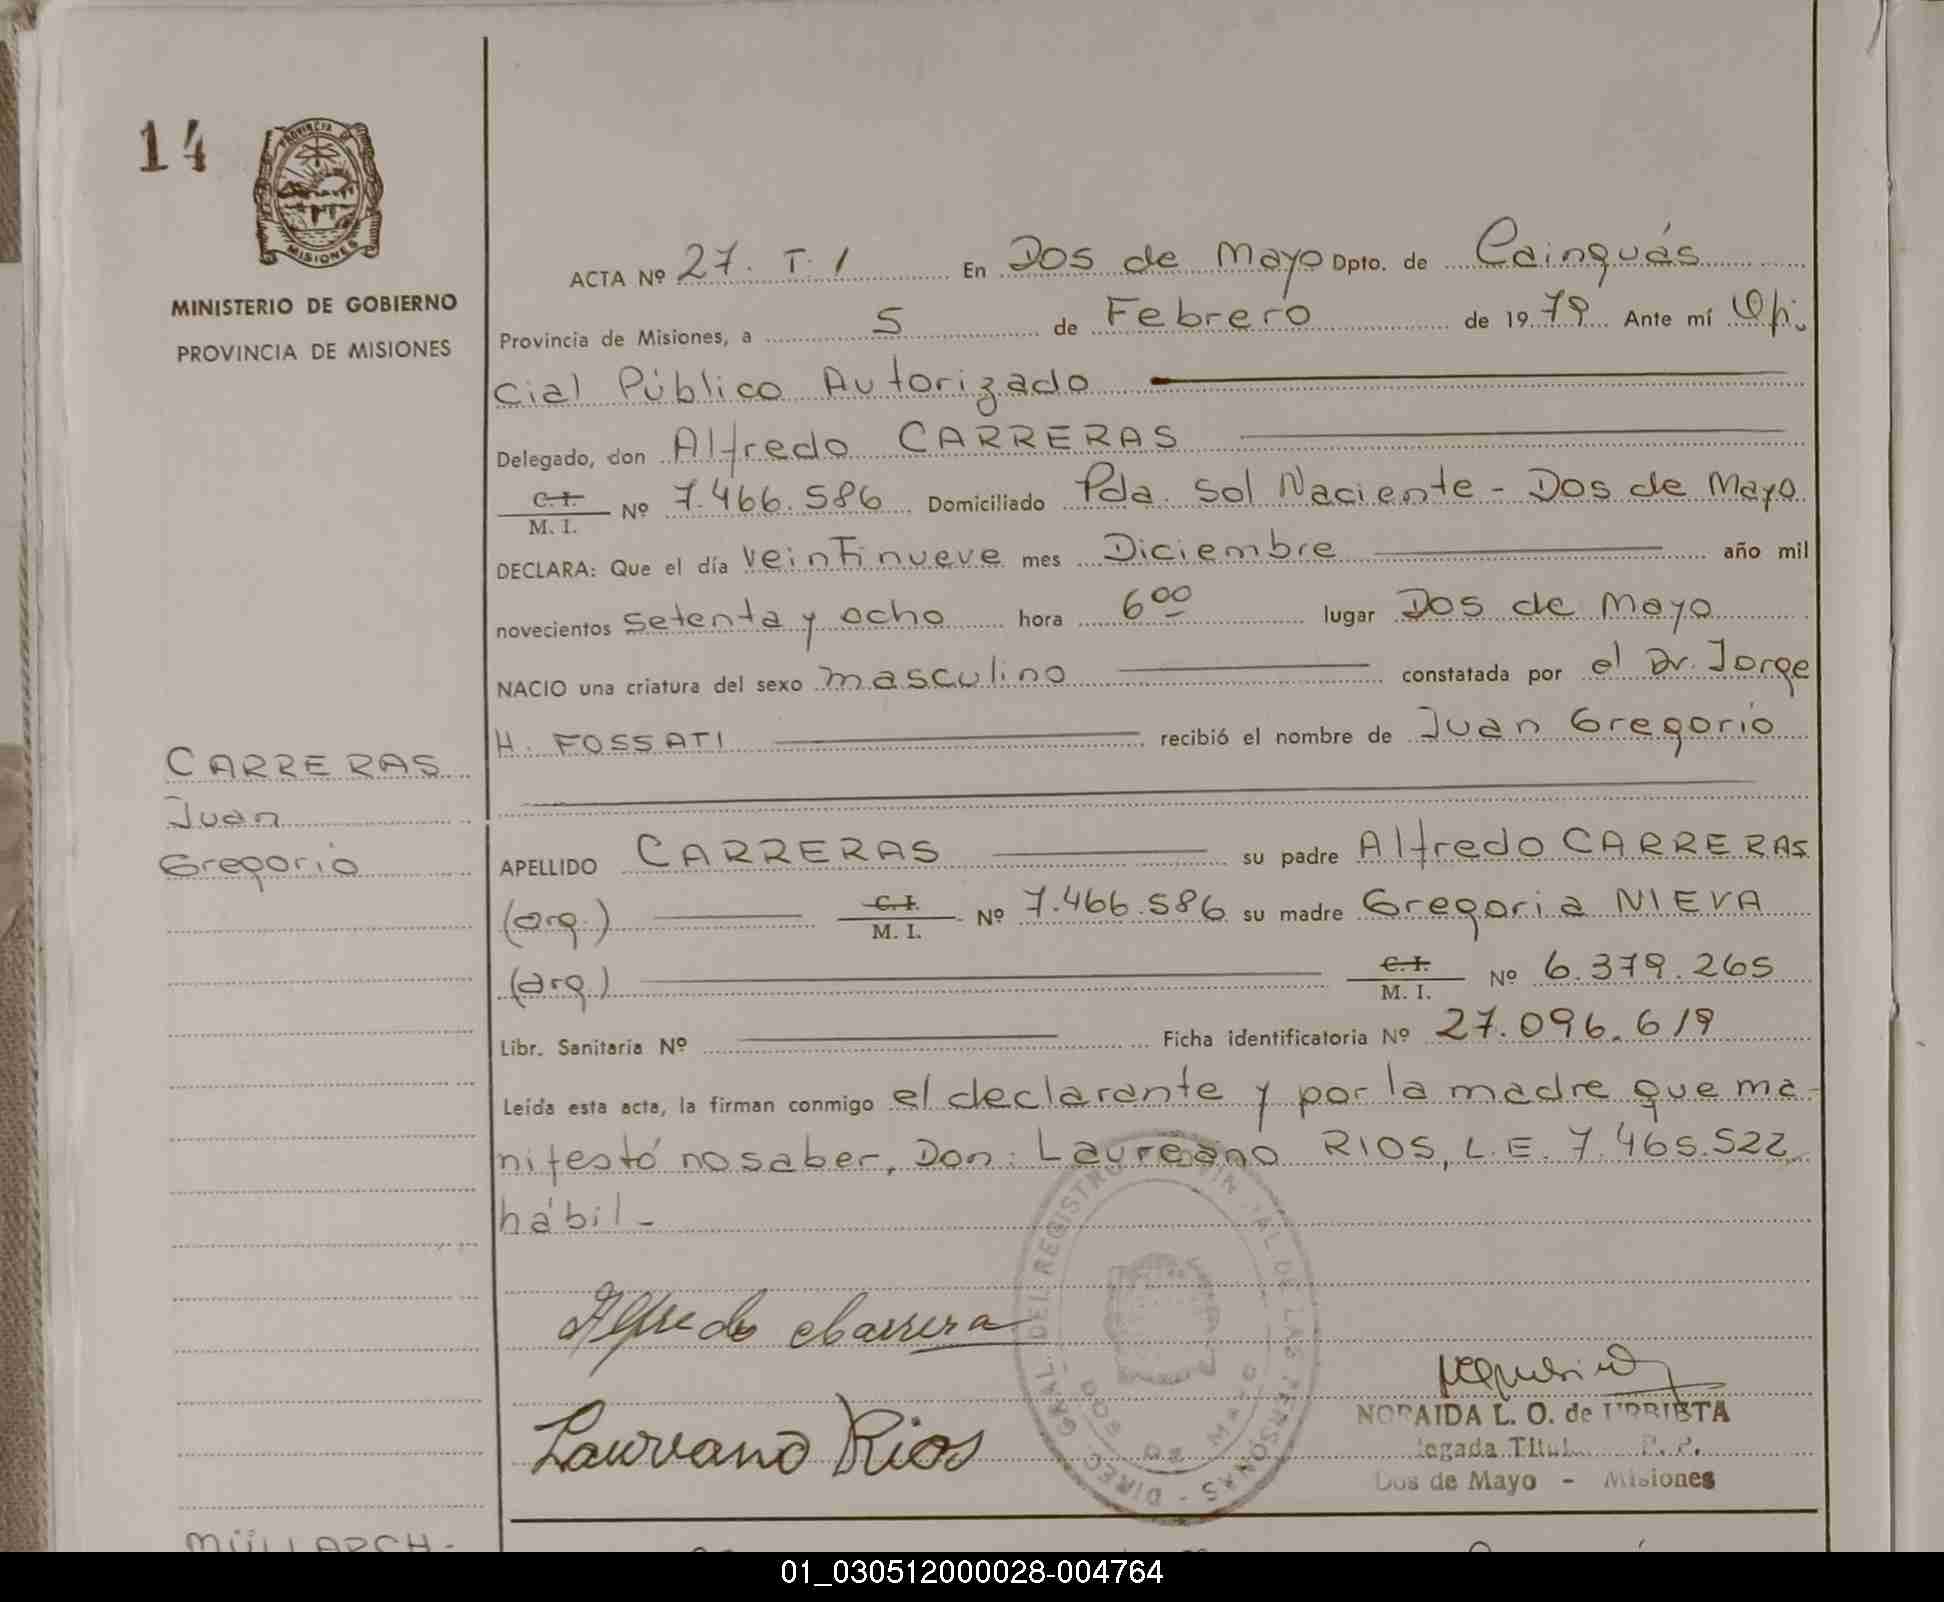 14
PROVINCIA DE
MISIONES
MINISTERIO DE GOBIERNO
PROVINCIA DE MISIONES
ACTA Nº 27. T. 1 En Dos de Mayo Dpto. de Cainguás
Provincia de Misiones, a 5 de Febrero de 1979 Ante mí Ofi.
cial Público Autorizado
Delegado, don Alfredo CARRERAS
C. I.
M. I. Nº 7.466.586 Domiciliado Pda. Sol Naciente - Dos de Mayo
DECLARA: Que el día veintinueve mes Diciembre año mil
novecientos setenta y ocho hora 6 00 lugar Dos de Mayo
NACIO una criatura del sexo masculino constatada por el Dr. Jorge
H. FOSSATI recibió el nombre de Juan Gregorio
CARRERAS
Juan
Gregorio
APELLIDO CARRERAS su padre Alfredo CARRERAS
(arg.) C. I. M. I. Nº 7.466.586 su madre Gregoria NIEVA
(arg.) C. I. M. I. Nº 6.379.265
Libr. Sanitaria Nº Ficha identificatoria Nº 27.096.619
Leída esta acta, la firman conmigo el declarante y por la madre que ma-
nifestó no saber, Don: Laureano RIOS, L.E. 7.465.522
hábil-
Alfredo Carrera
Laureano Rios
DIREC. GRAL. DEL REGISTRO DE LAS PERSONAS
DOS DE MAYO
NORAIDA L. O. de URRISTA
legada Titul P. P.
Dos de Mayo - Misiones
01_030512000028-004764